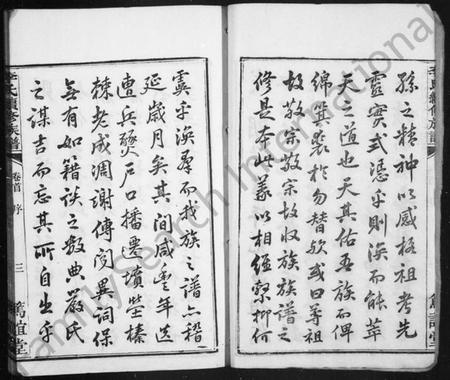 李氏續修族譜
孫之精神以感格祖考先
靈實式憑乎則渙而能萃
天之道也天其佑吾族而俾
綿其裝於勿替欤或曰尊祖
故敬宗敬宗故收族族譜之
修是本此義以相維繫抑何
虞乎渙群而我族之譜六稽
延歲月矣其間咸豐年迭
遭兵燹戶口播遷墳塋榛
棘老成凋謝傳聞異詞保
無有如籍談之數典嚴氏
之謀吉而忘其所自出乎
李氏續修族譜
卷首 序
三
篤誼堂
FamilySearch International